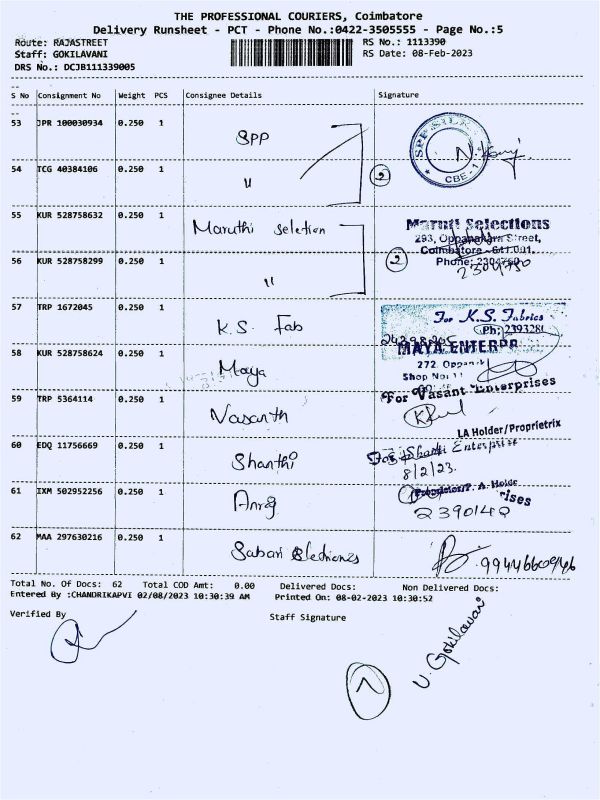 THE PROFESSIONAL COURIERS, Coimbatore
Delivery Runsheet - PCT - Phone No.:0422-3505555 - Page No.:5
Route: RAJASTREET
RS No.: 1113390
Staff: GOKILAVANI
RS Date: 08-Feb-2023
DRS No.: DCJB111339005
S No Consignment No Weight PCS Consignee Details Signature
53 JPR 100030934 0.250 1 SPP
SPP SILK
CBE-1
54 TCG 40384106 0.250 1 "
2
55 KUR 528758632 0.250 1 Maruthi seletion
Maruti Selections
293, Oppanakara Street,
Coimbatore - 641 001.
Phone: 2304750
2304750
56 KUR 528758299 0.250 1 "
2
57 TRP 1672045 0.250 1 K.S. Fab
For K.S. Fabrics
Ph: 2393281
58 KUR 528758624 0.250 1 Maya
MAYA ENTERPR
272, Oppan
Shop No
59 TRP 5364114 0.250 1 Vasanth
For Vasant Enterprises
LA Holder/Proprietrix
60 EDQ 11756669 0.250 1 Shanthi
For Shanthi Enterprise
8/2/23.
61 IXM 502952256 0.250 1
P. A. Holde
ises
2390140
62 MAA 297630216 0.250 1 Sabari
9944660946
Total No. Of Docs: 62 Total COD Amt: 0.00 Delivered Docs: Non Delivered Docs:
Entered By :CHANDRIKAPVI 02/08/2023 10:30:39 AM Printed On: 08-02-2023 10:30:52
Verified By
Staff Signature
U. Gokilavani
7